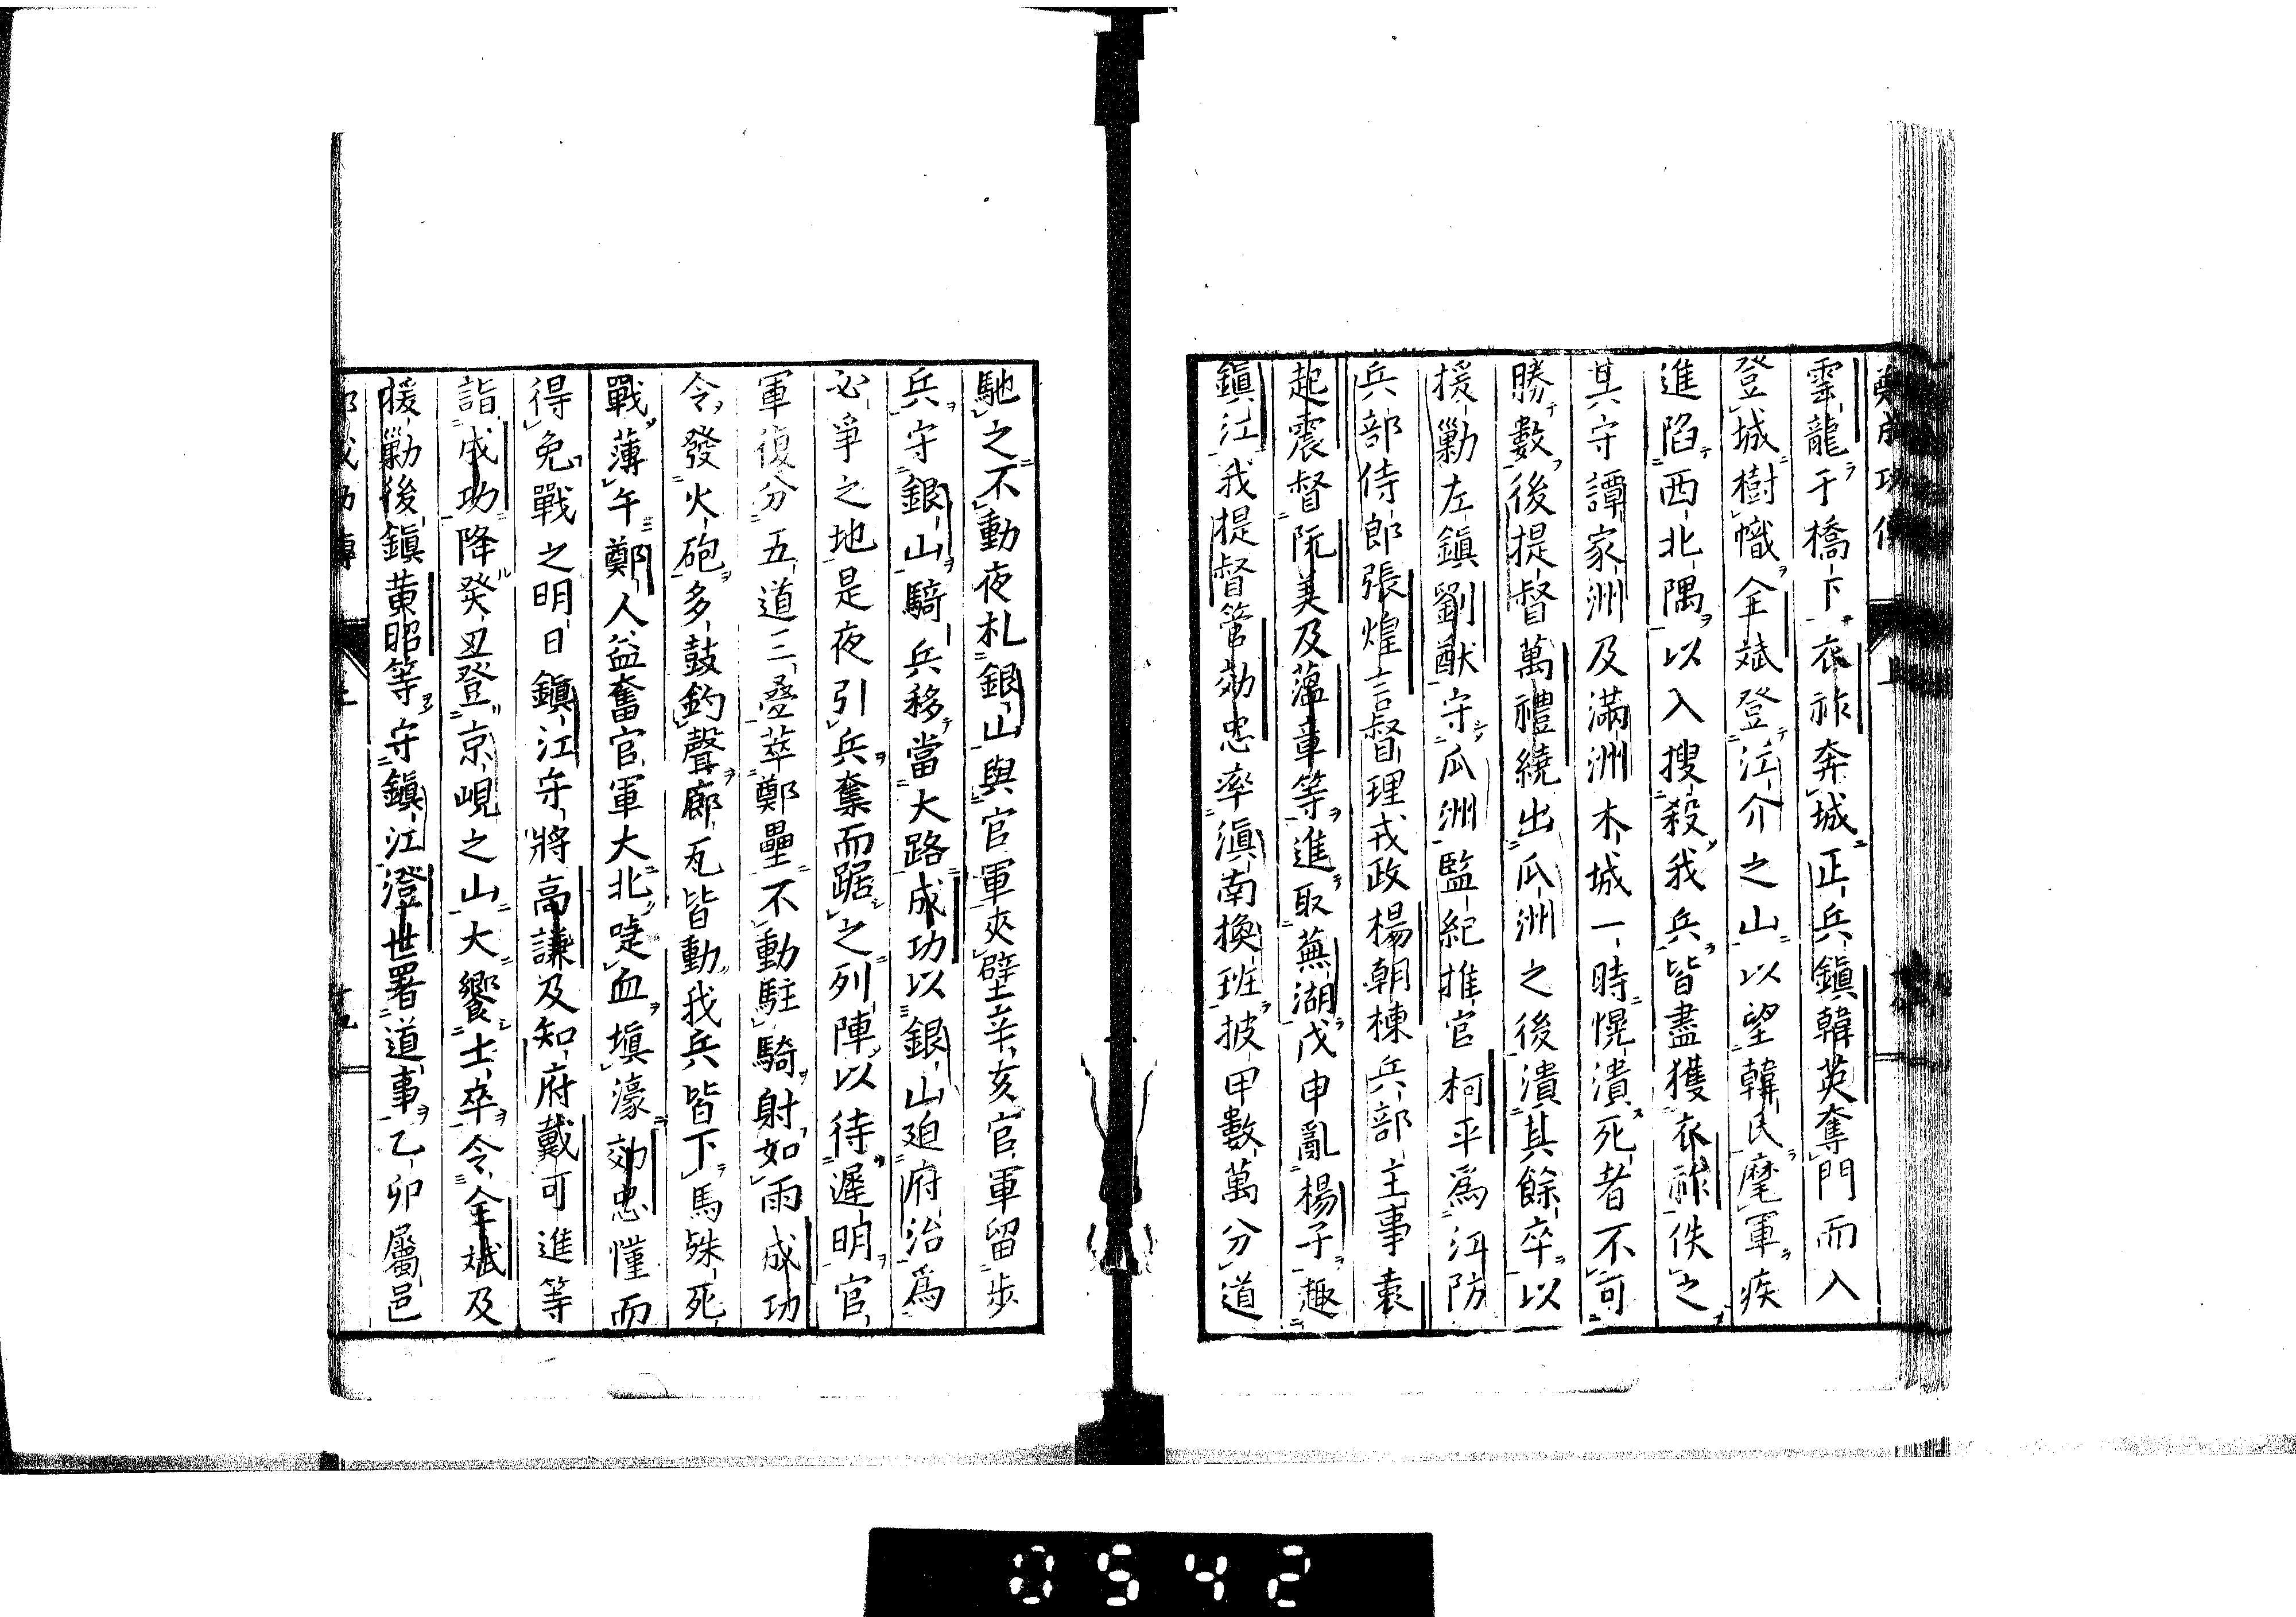 鄭成功傳
上
雲龍于橋下衣祚奔城正兵鎮韓英奪門而入
登城樹幟全斌登江介之山以望韓氏麾軍疾
進陷西北隅以入搜殺我兵皆盡獲衣祚佚之
其守譚家洲及滿洲木城一時愰潰死者不可
勝數後提督萬禮繞出瓜洲之後潰其餘卒以
援勦左鎮劉猷守瓜洲監紀推官柯平爲江防
兵部侍郎張煌言督理戎政楊朝棟兵部主事袁
起震督阮美及蕰章等進取蕪湖戊申亂楊子趣
鎮江我提督管効忠率滇南換班披甲數萬分道
馳之不動夜札銀山與官軍夾壁辛亥官軍留步
兵守銀山騎兵移當大路成功以銀山廹府治爲
必爭之地是夜引兵奪而踞之列陣以待遲明官
軍復分五道三疊萃鄭壘不動駐騎射如雨成功
令發火砲多鼓鈞聲廊瓦皆動我兵皆下馬殊死
戰薄午鄭人益奮官軍大北喋血塡濠効忠慬而
得免戰之明日鎮江守將高謙及知府戴可進等
詣成功降癸丑登京峴之山大饗士卒令全斌及
援勦後鎮黄昭等守鎮江澄世署道事乙卯屬邑
0542